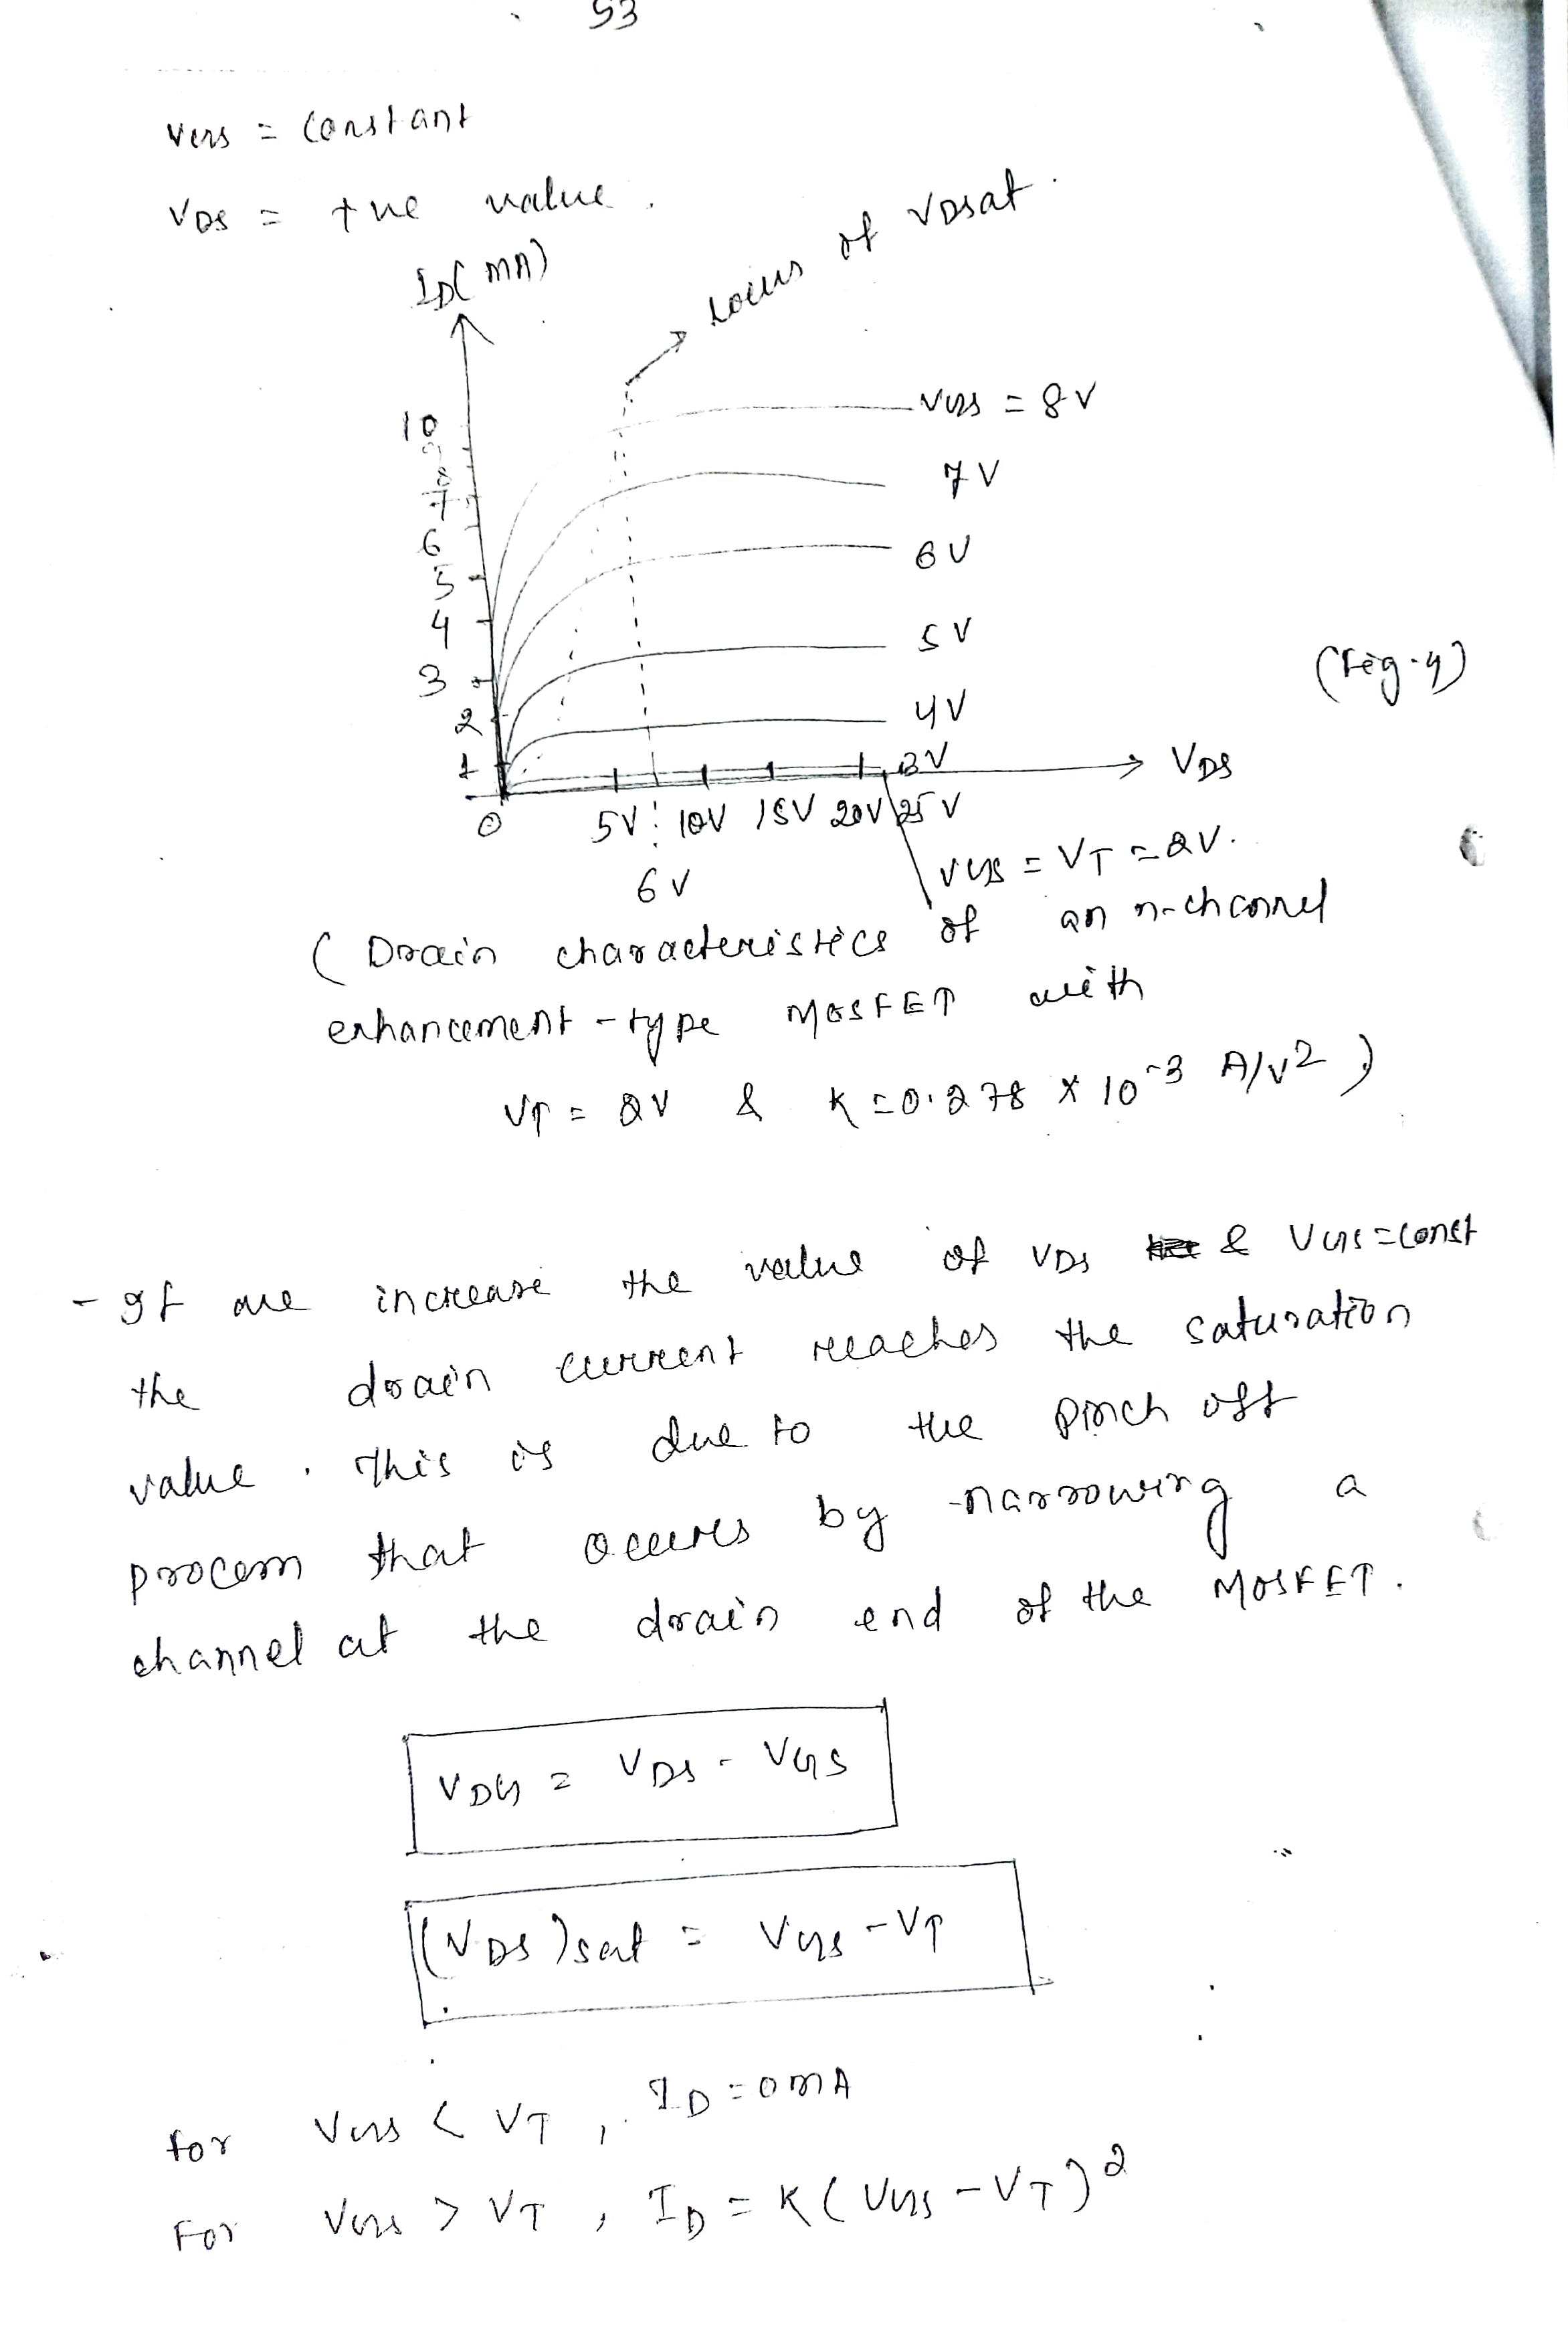 53
VGS = Constant
VDS = +ve value.
ID( mA)
Locus of VDsat.
10
9
8
7
6
5
4
3
2
1
0
VGS = 8V
7V
6V
5V
4V
3V
(Fig.4)
VDS
5V 10V 15V 20V 25V
6V
VGS = VT = 2V.
( Drain characteristics of an n-channel
enhancement-type MOSFET with
VT = 2V & K=0.278 x 10-3 A/V2 )
- If we increase the value of VDS & VGS=const
the drain current reaches the saturation
value. This is due to the pinch off
process that occures by narrowing a
channel at the drain end of the MOSFET.
VDG = VDS - VGS
(VDS)sat = VGS - VT
for VGS < VT, ID = 0mA
For VGS > VT, ID = K( VGS - VT )2